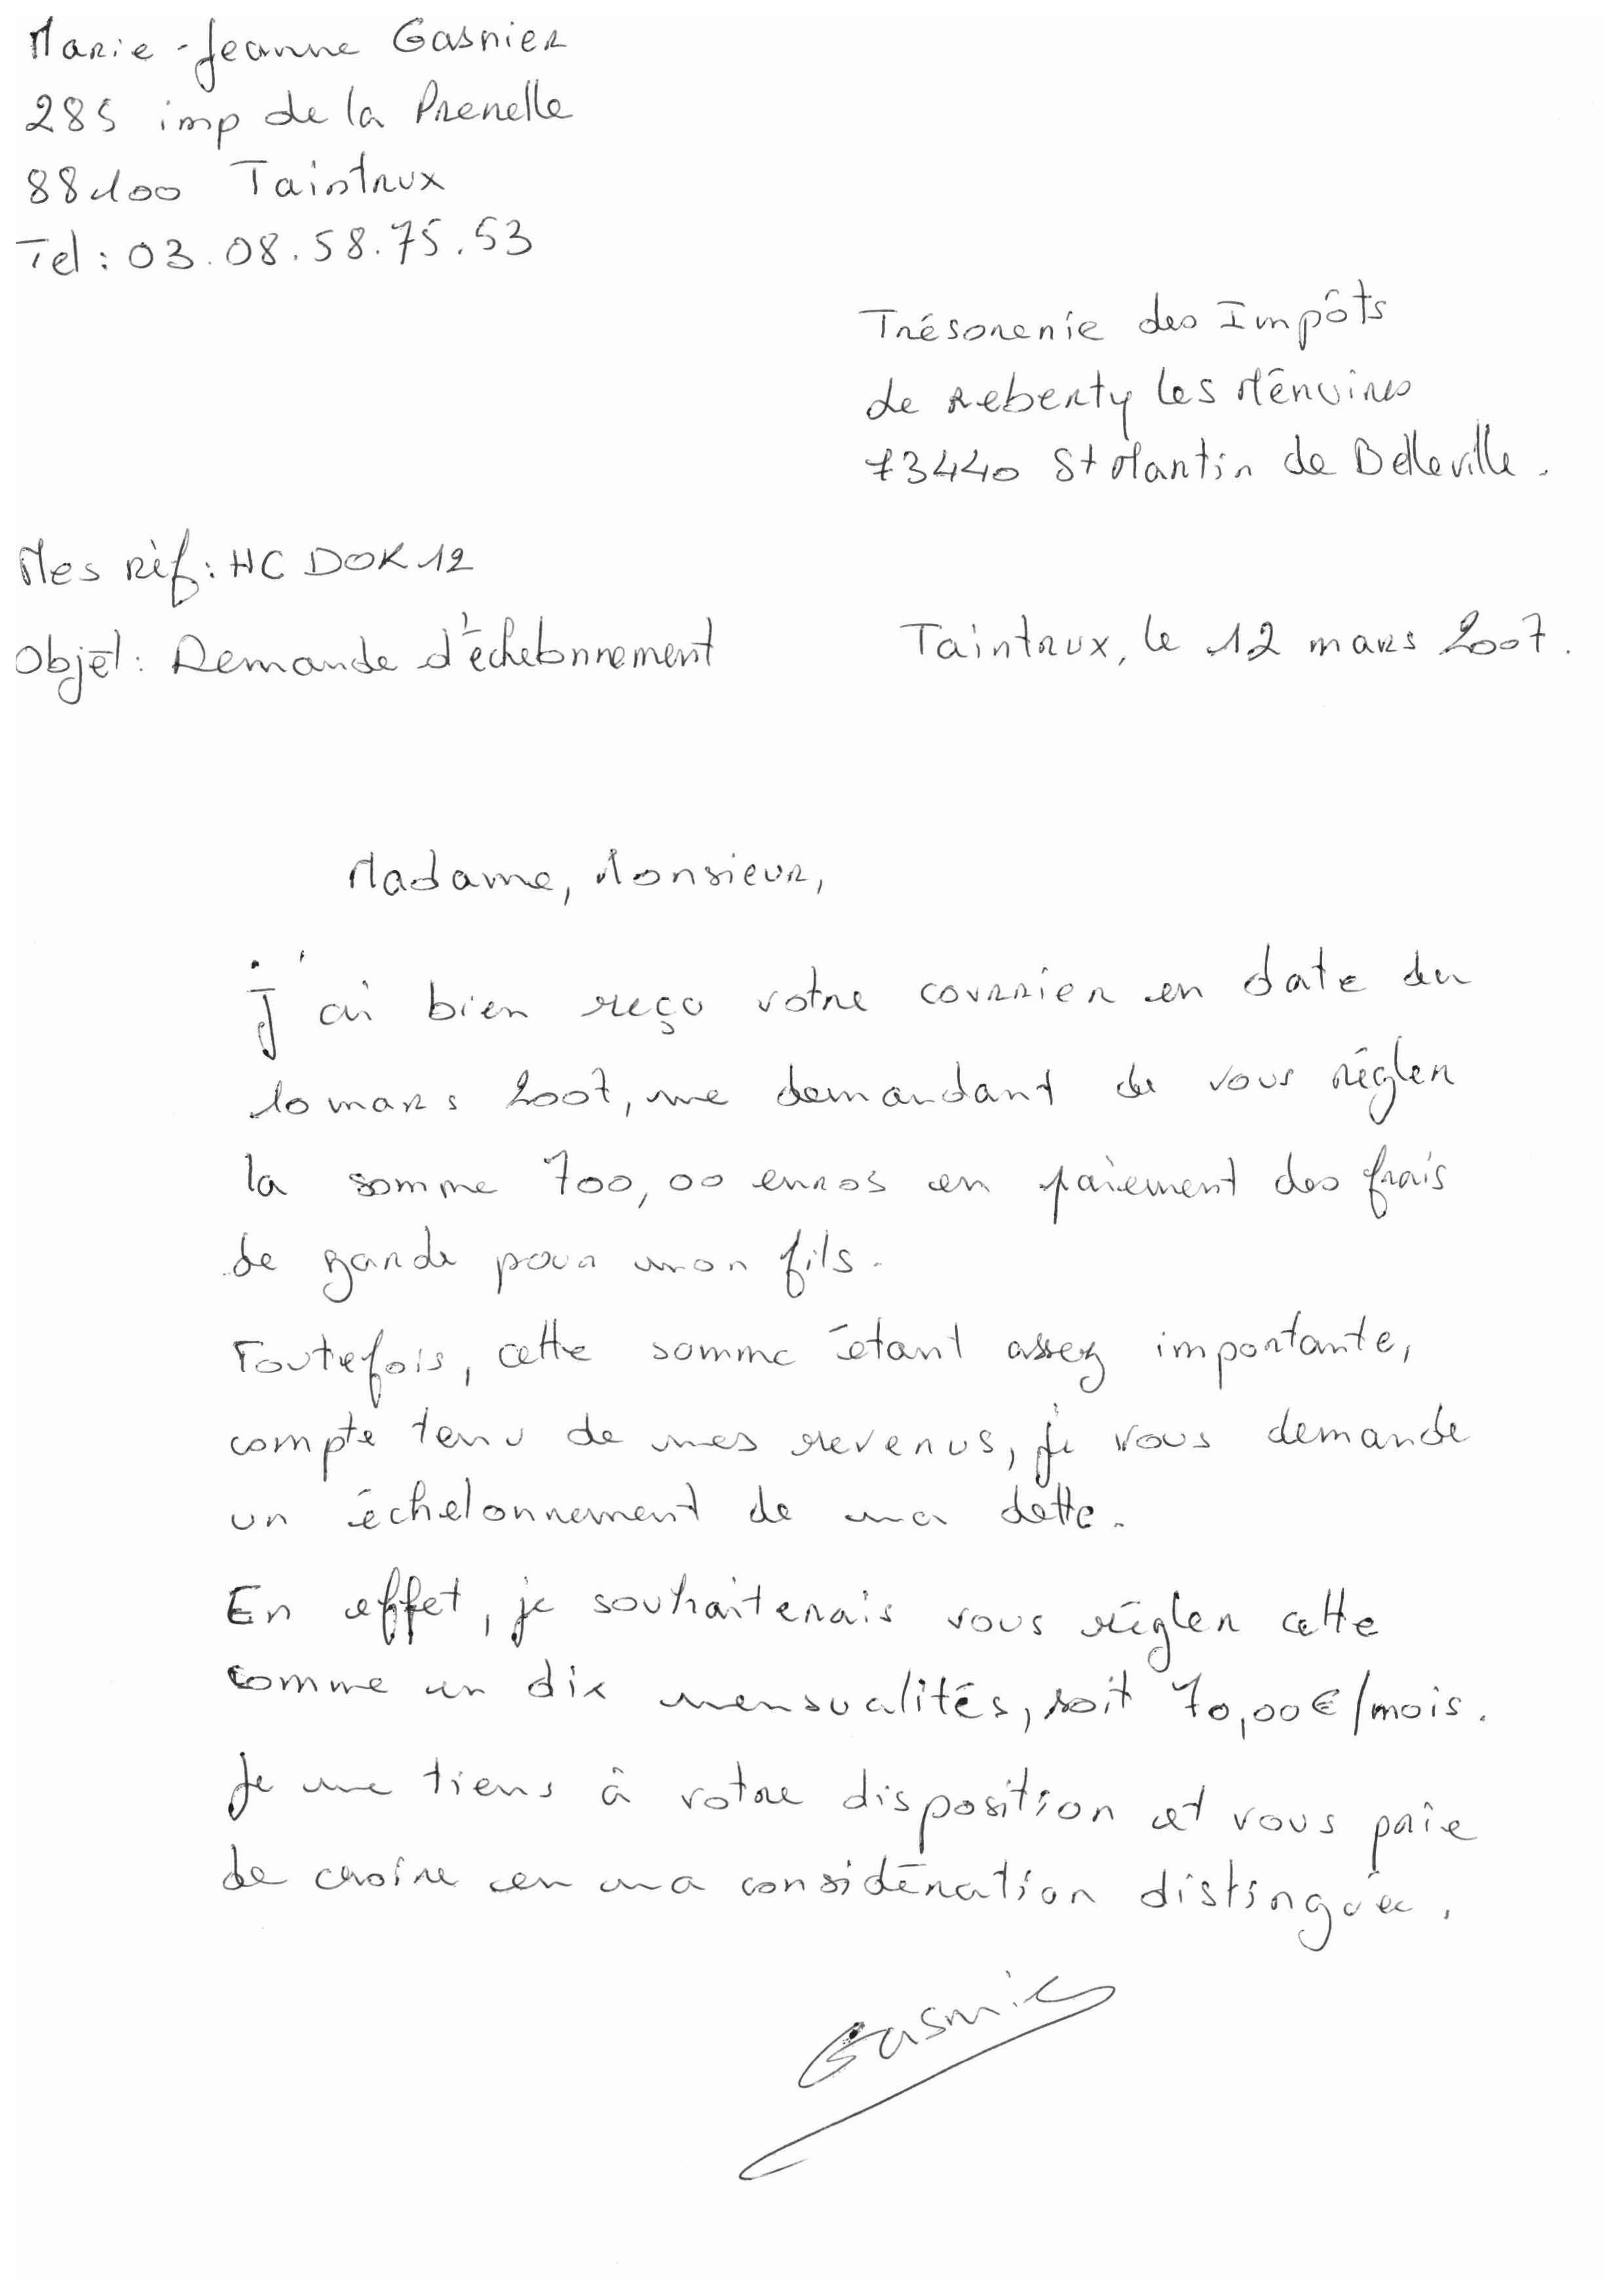 Marie-Jeanne Gasnier
285 imp de la Prenelle
88100 Taintrux
Tel : 03.08.58.75.53
Trésorerie des Impôts
de Reberty les Ménuires
73440 St Martin de Belleville.
Mes réf : HC DOK 12
Objet : Demande d'échelonnement
Taintrux, le 12 mars 2007.
Madame, Monsieur,
j'ai bien reçu votre courrier en date du
10 mars 2007, me demandant de vous régler
la somme 700,00 euros en paiement des frais
de garde pour mon fils.
Toutefois, cette somme étant assez importante,
compte tenu de mes revenus, je vous demande
un échelonnement de ma dette.
En effet, je souhaiterais vous régler cette
somme en dix mensualités, soit 70,00€/mois.
Je me tiens à votre disposition et vous prie
de croire en ma considération distinguée.
Gasnier